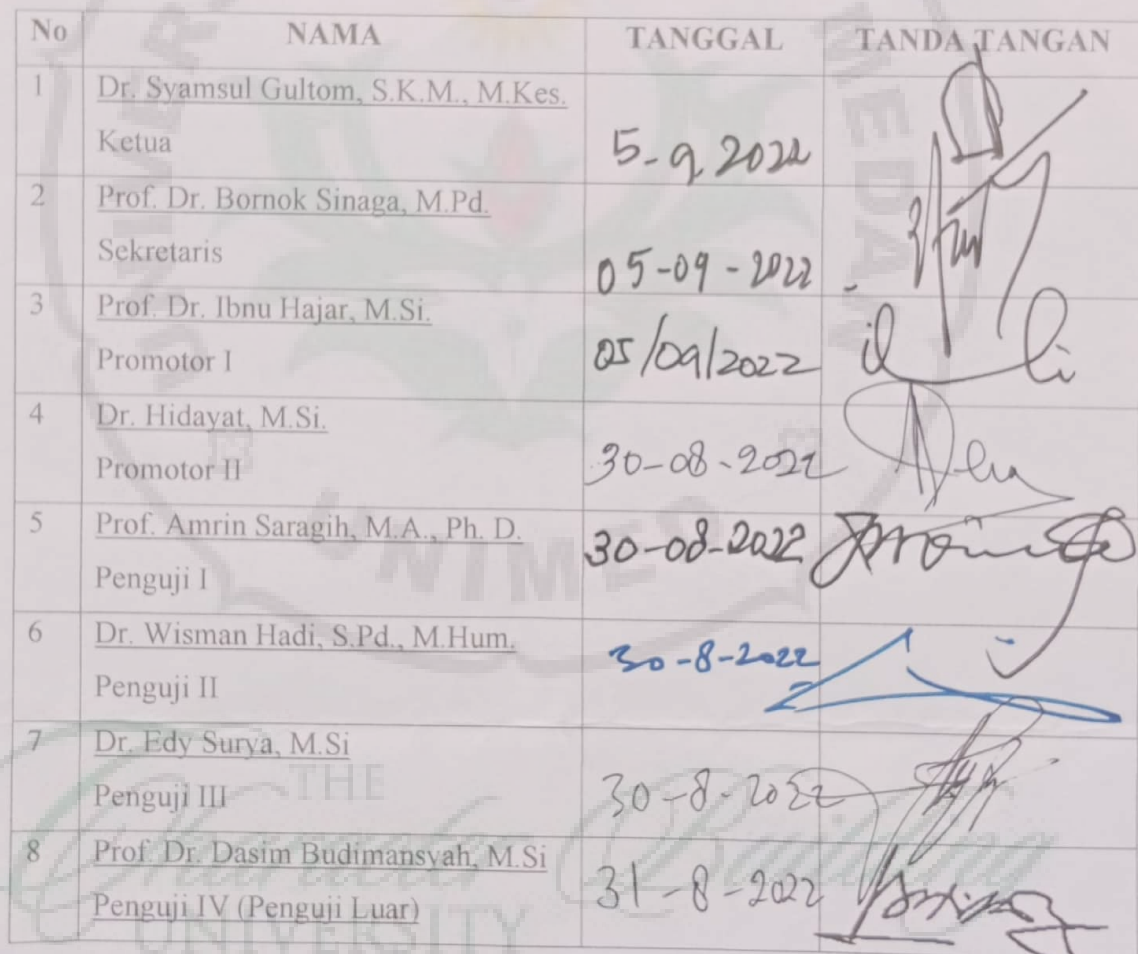 No NAMA TANGGAL TANDA TANGAN
1 Dr. Syamsul Gultom, S.K.M., M.Kes.
Ketua 5-9 2022
2 Prof. Dr. Bornok Sinaga, M.Pd.
Sekretaris 05-09-2022
3 Prof. Dr. Ibnu Hajar, M.Si.
Promotor I 05/09/2022
4 Dr. Hidayat, M.Si.
Promotor II 30-08-2022
5 Prof. Amrin Saragih, M.A., Ph. D. 30-08-2022
Penguji I
6 Dr. Wisman Hadi, S.Pd., M.Hum. 30-8-2022
Penguji II
7 Dr. Edy Surya, M.Si
Penguji III 30-8-2022
8 Prof. Dr. Dasim Budimansyah, M.Si
Penguji IV (Penguji Luar) 31-8-2022
MEDAN
UNIMED
THE
Character Building
UNIVERSITY